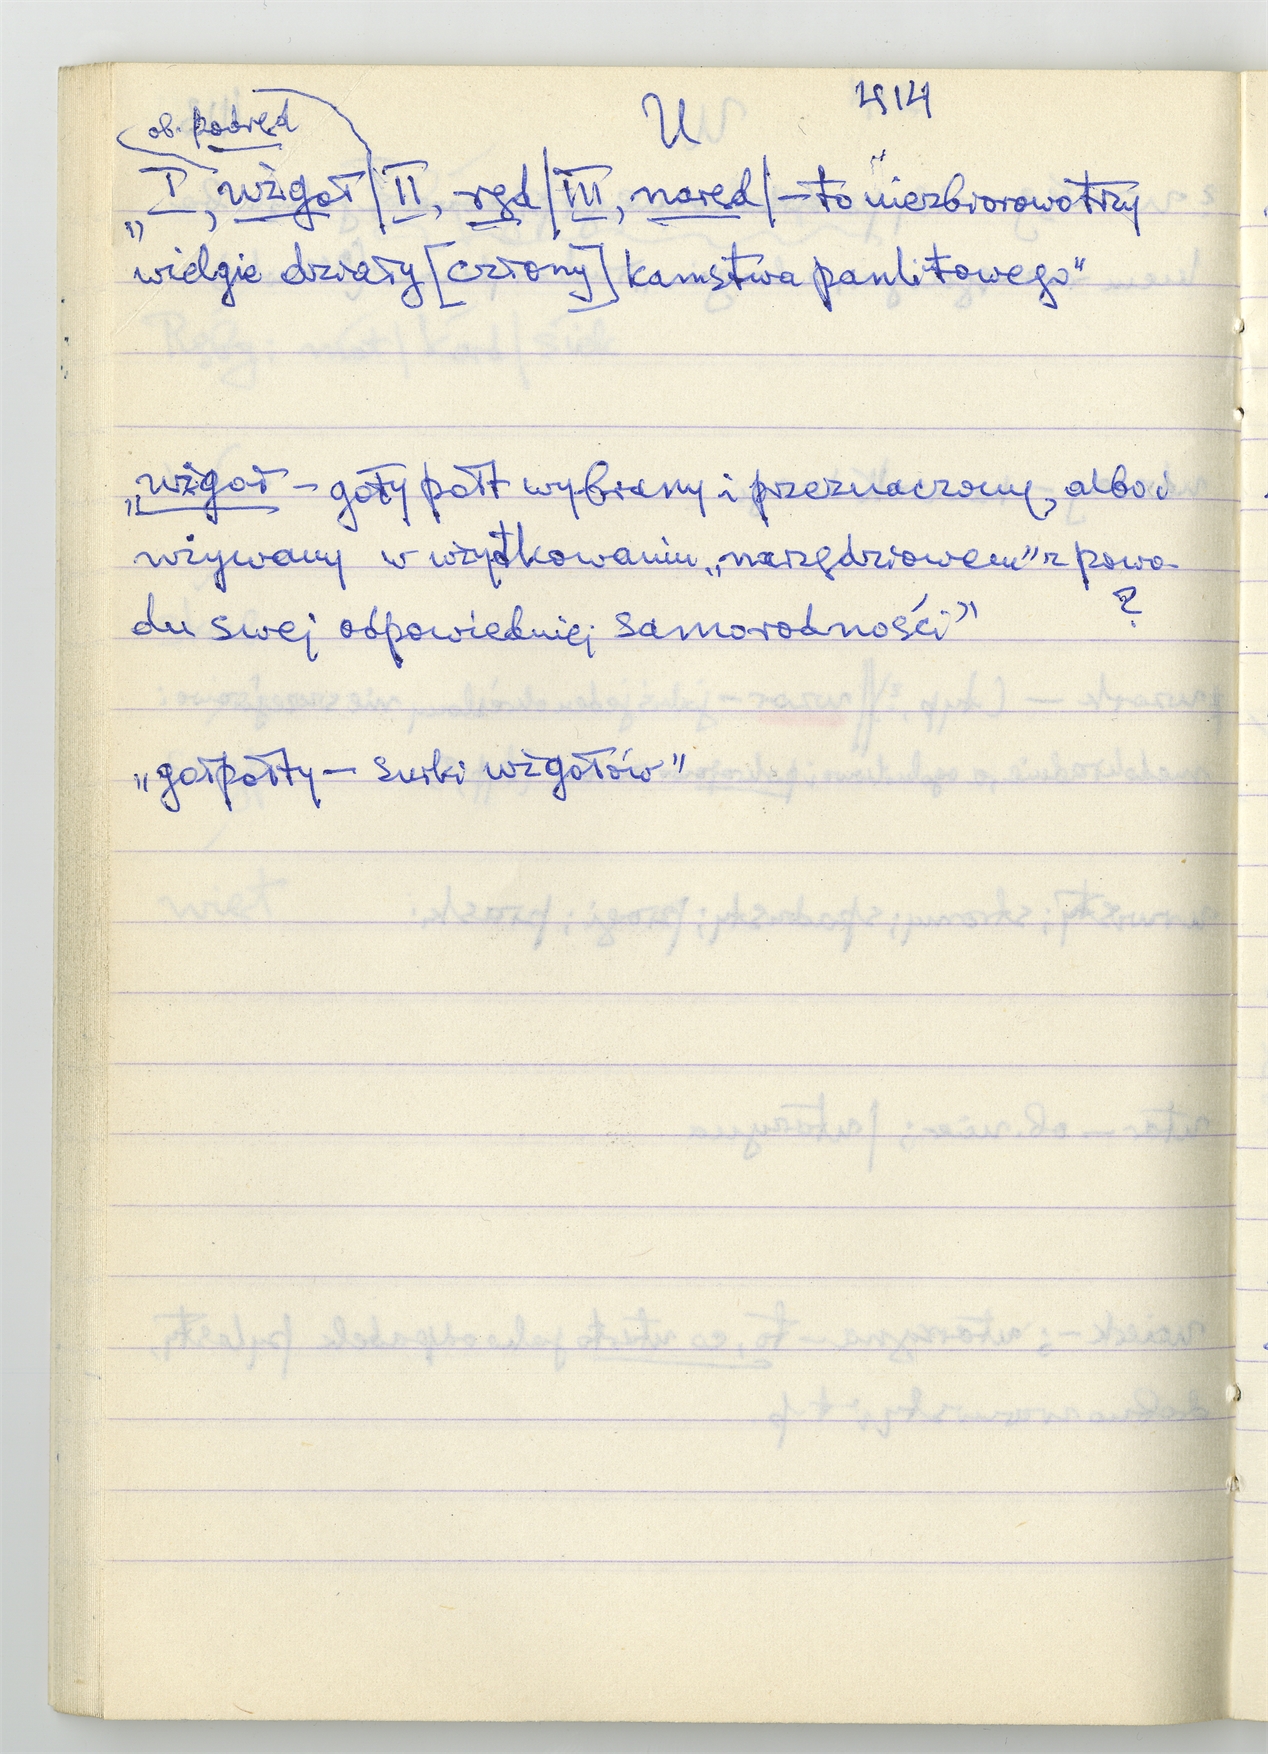 U 414
ob. podręd
„I, użgoł | II, ręd | III, naręd | – to niezbiorowo trzy
wielgie działy [człony] kamstwa pamlitowego"
„użgoł – goły półt wybrany i przeznaczony, albo i
używany w użytkowaniu „narzędziowem" z powo-
du swej odpowiedniej samorodności" ?
„gołpółty – surki użgołów"